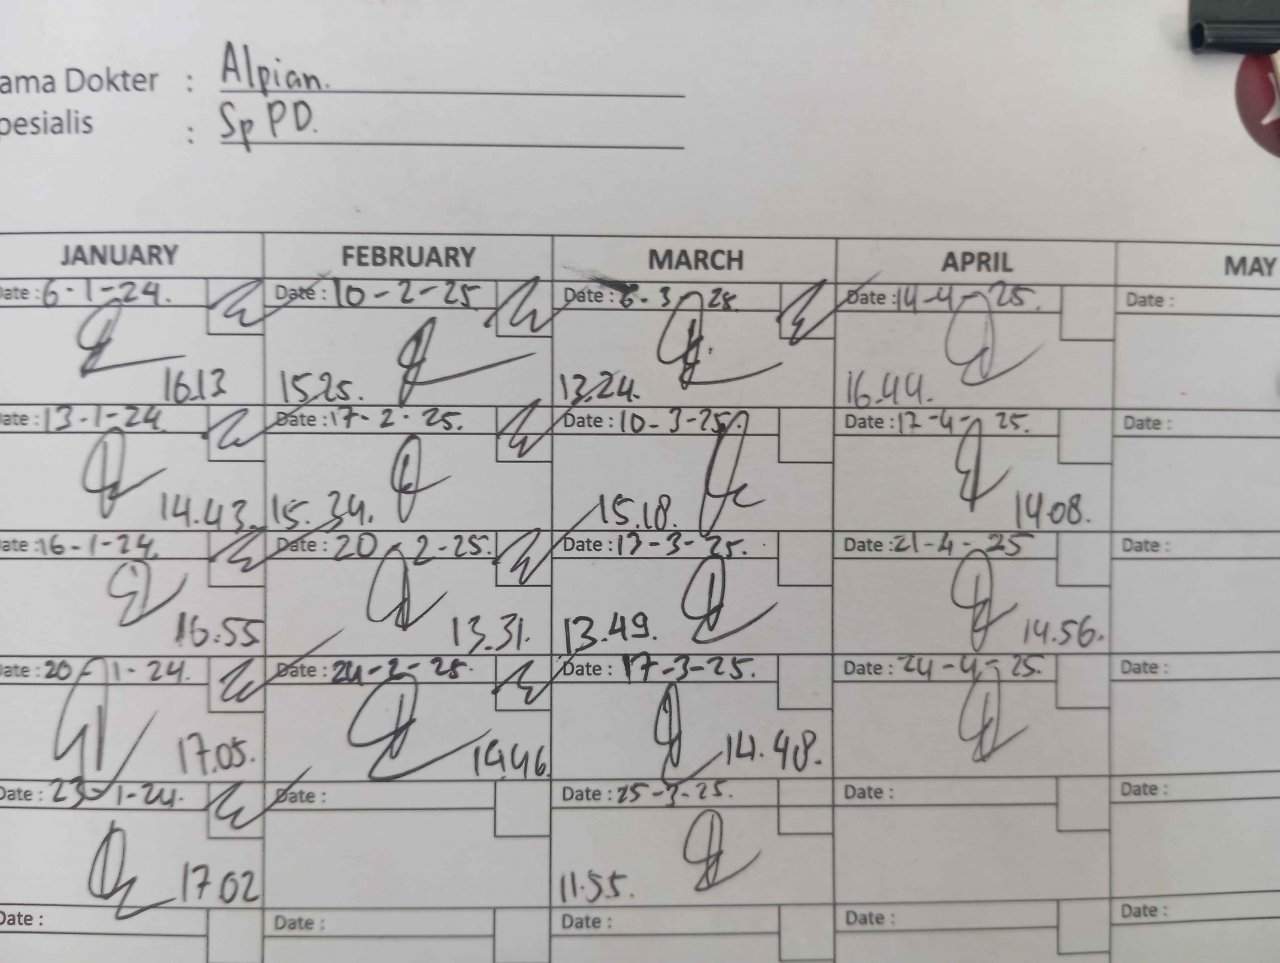 ama Dokter : Alpian.
pesialis : Sp PD.
JANUARY FEBRUARY MARCH APRIL MAY
ate : 6-1-24. Date : 10-2-25 Date : 6-3-25. Date : 14-4-25. Date :
16.13 15.25. 13.24. 16.44.
ate : 13-1-24. Date : 17-2-25. Date : 10-3-25. Date : 17-4-25. Date :
14.43. 15.34. 15.18. 14.08.
ate : 16-1-24. Date : 20-2-25. Date : 13-3-25. Date : 21-4-25 Date :
16.55 13.31. 13.49. 14.56.
ate : 20-1-24. Date : 24-2-25. Date : 17-3-25. Date : 24-4-25. Date :
17.05. 14.46 14.48.
Date : 23-1-24. Date : Date : 25-3-25. Date : Date :
17 02 11.55.
Date : Date : Date : Date : Date :